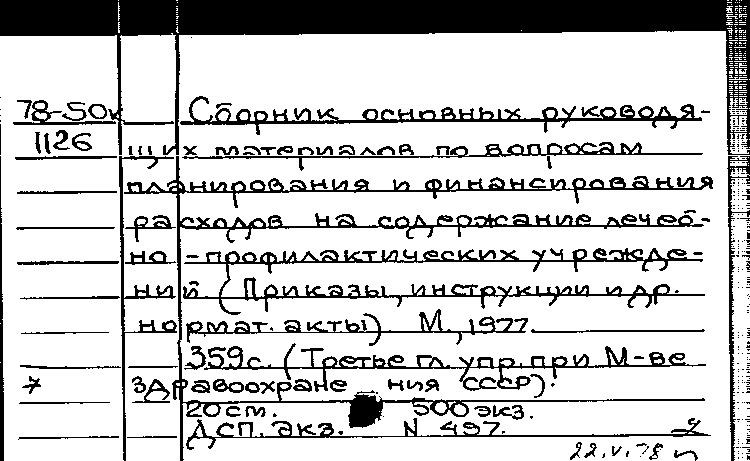 78-50к Сборник основных руководя-
1126 щих материалов по вопросам
планирования и финансирования
расходов на содержание лечеб-
но-профилактических учрежде-
ний (Приказы, инструкции и др.
нормат. акты) М., 1977.
359с. (Третье гл. упр. при М-ве
здравоохранения СССР).
20 см. 500 экз.
ДСП. экз. N 497.
22.V.78